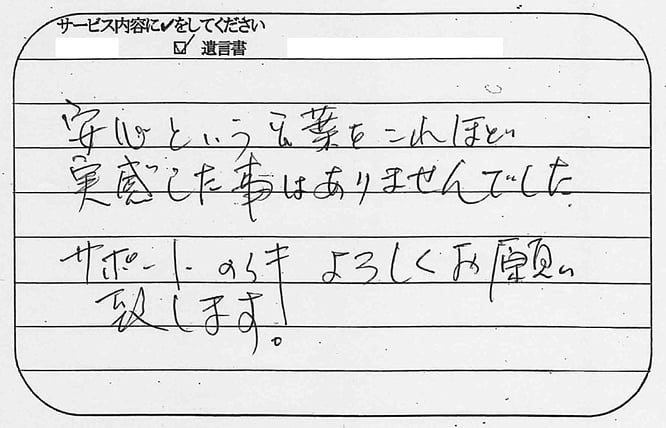 サービス内容に✓をしてください
☑ 遺言書
安心という言葉をこれほど
実感した事はありませんでした
サポートの件 よろしくお願い
致します。